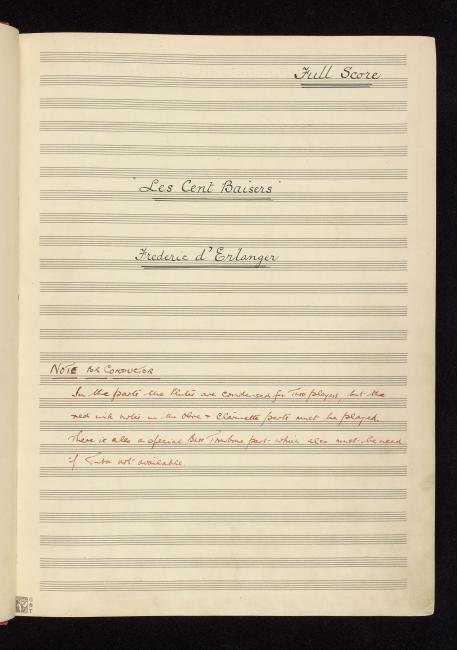 Full Score
"Les Cent Baisers"
Frederic d'Erlanger
NOTE FOR CONDUCTOR
In the parts the flutes are condensed for Two players, but the
red ink notes in the oboe + clarinette parts must be played.
There is also a special Bass Trombone part which also must be used
if Tuba not available.